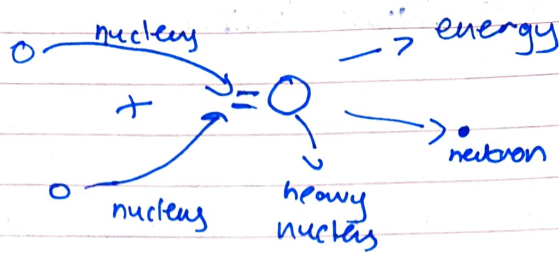 nucleus
energy
+
=
neutron
nucleus
heavy
nucleus